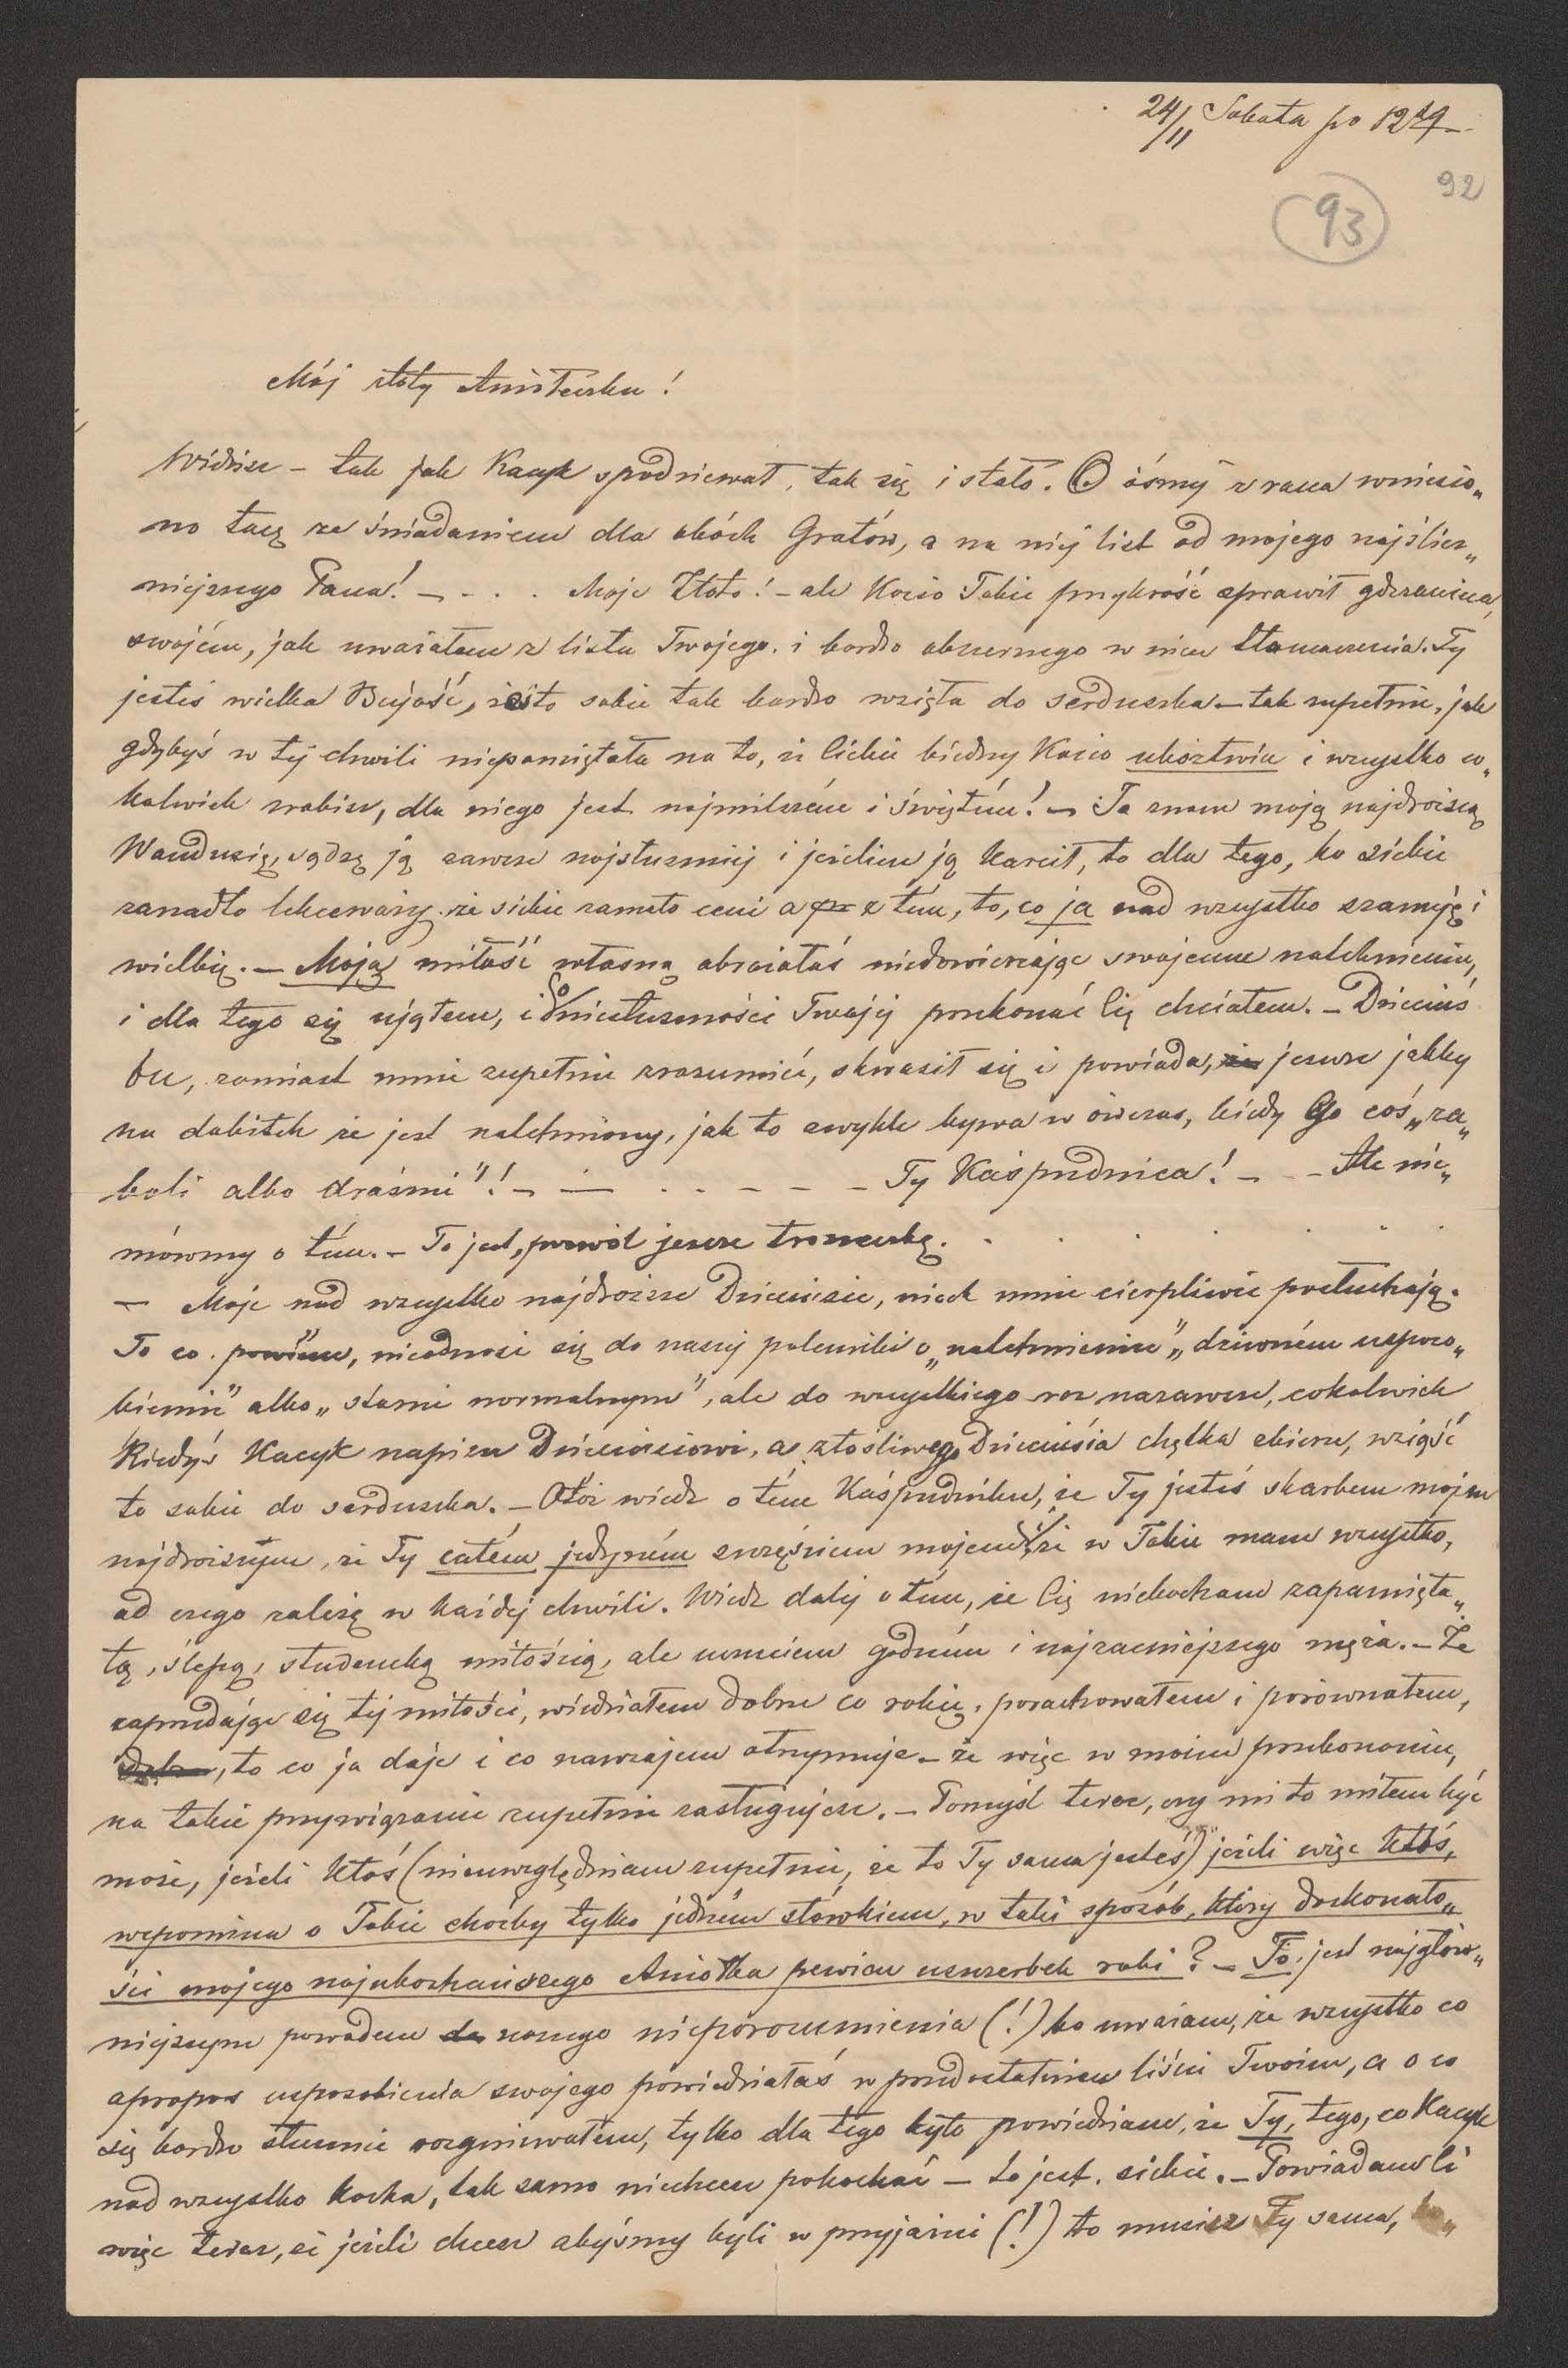 24/11 Sobota po 12ej
92
93
Mój złoty Aniołeczku!
Widzisz – tak jak Kacyk spodziewał, tak się i stało. O ósmej z rana wniesio„
no tacę ze śniadaniem dla obóch Gratów, a na niej list od mojego najślicz„
niejszego Pana! – - . . Moje Złoto! – ale Kocio Tobie przykrość sprawił gderaniem
swojém, jak uważałem z listu Twojego i bardzo obszernego w nim tłomaczenia. Ty
jesteś wielka Bujość, żeś to sobie tak bardzo wzięła do serduszka – tak zupełnie, jak
gdybyś w tej chwili niepamiętała na to, że Ciebie biedny Kocio ubóztwia i wszystko co„
kolwiek zrobisz, dla niego jest najmilszém i świętém! – Ja znam moją najdroższą
Wandusię, sądzę ją zawsze najsłuszniej i jeżelim ją karcił, to dla tego, bo siebie
zanadto lekceważy, że siebie zamało ceni a z tém, to, co ja nad wszystko szanuję i
wielbię. – Moją miłość własną obraziałaś niedowierzając swojemu natchnieniu,
i dla tego się ująłem, i o niesłuszności Twojej przekonać Cię chciałem. – Dzieciuś
bu, zamiast mnie zupełnie zrozumieć, skwasił się i powiada, że jeszcze jakby
na dobitek że jest natchniony, jak to zwykle bywa w ówczas, kiedy Go coś „za„
boli albo drażni"! – — . . – – – – Ty Kaśpudnica! – - – Ale nie„
mówmy o tém. – To jest, pozwól jeszcze troszeczkę. . . . . . .
– Moje nad wszystko najdroższe Dzieciusie, niech mnie cierpliwie posłuchają.
To co powiem, nieodnosi się do naszej polemiki o „natchnieniu", „dziwném usposo„
bieniu" albo „stanie normalnym", ale do wszystkiego raz nazawsze, cokolwiek
kiedyś Kacyk napisze Dzieciusiowi, a złośliwego Dzieciusia chętka zbierze, wziąść
to sobie do serduszka. – Otóż wiedz o tém Kaśpudniku, że Ty jesteś skarbem mojem
najdroższym, że Ty całém jedyném szczęściem mojem, że w Tobie mam wszystko,
od czego zależę w każdej chwili. Wiedz dalej o tém, że Cię niekocham zapamięta„
łą, ślepą, studencką miłością, ale uczuciem godném i najzacniejszego męża. – Że
zaprzedając się tej miłości, wiedziałem dobrze co robię, porachowałem i porównałem,
to co ja daję i co nawzajem otrzymuję – że więc w moim przekonaniu,
na takie przywiązanie zupełnie zasługujesz. – Pomyśl teraz, czy mi to miłem być
może, jeżeli ktoś (nieuwzględniam zupełnie, że to Ty sama jesteś) jeżeli więc ktoś,
wspomina o Tobie choćby tylko jedném słówkiem, w taki sposób, który doskonało„
ści mojego najukochańszego Aniołka pewien uszczerbek robi? – To, jest najgłów„
niejszym powodem naszego nieporozumienia (!) bo uważam, że wszystko co
apropos usposobienia swojego powiedziałaś w przedostatnim liście Twoim, a o co
się bardzo słusznie rozgniewałem, tylko dla tego było powiedziane, że Ty, tego, co Kacyk
nad wszystko kocha, tak samo niechcesz pokochać – to jest siebie. – Powiadam Ci
więc teraz, że jeżeli chcesz abyśmy byli w przyjaźni (!) to musisz Ty sama, ko„